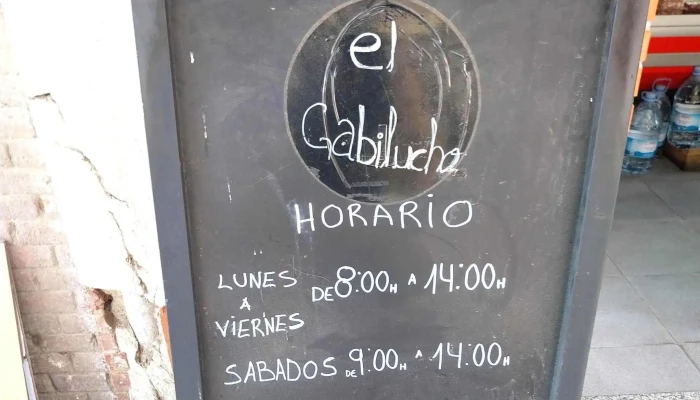 el
Gabilucho
HORARIO
LUNES DE 8:00H A 14:00H
A
VIERNES
SABADOS DE 9:00H A 14:00H